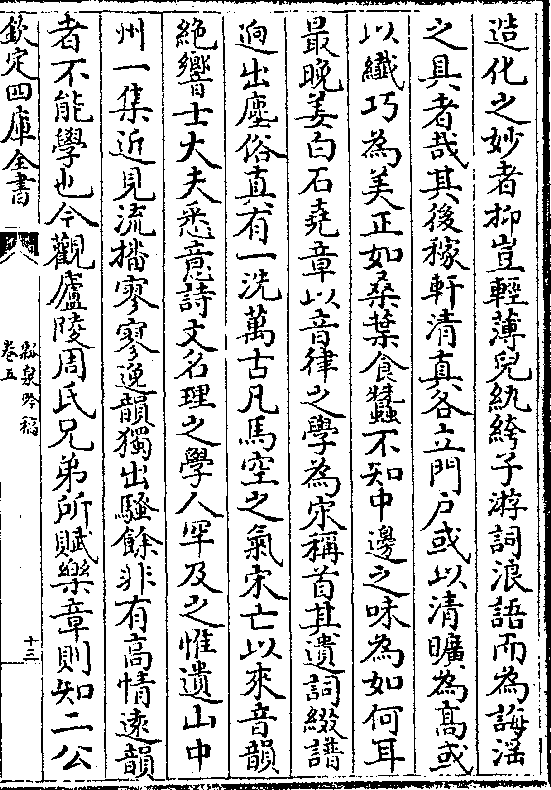 造化之妙者抑豈輕薄兒紈絝子游詞浪語而為誨淫
之具者哉其後稼軒清真各立門户或以清曠為高或
以纖巧為美正如桑葉食蠶不知中邊之味為如何耳
最晚姜白石堯章以音律之學為宋稱首其遺詞綴譜
逈出塵俗真有一洗萬古凡馬空之氣宋亡以來音韻
絶響士大夫悉意詩文名理之學人罕及之惟遺山中
州一集近見流播寥寥逸韻獨出騷餘非有高情遠韻
者不能學也今觀廬陵周氏兄弟所賦樂章則知二公
欽定四庫全書
瓢泉吟稿
卷五
十三